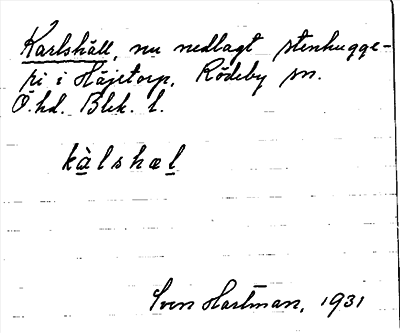 Karlshäll, nu nedlagt stenhugge-
ri i Höjetorp, Rödeby sn.
Ö. hd. Blek. l.
kàlshæl
Sven Hartman, 1931